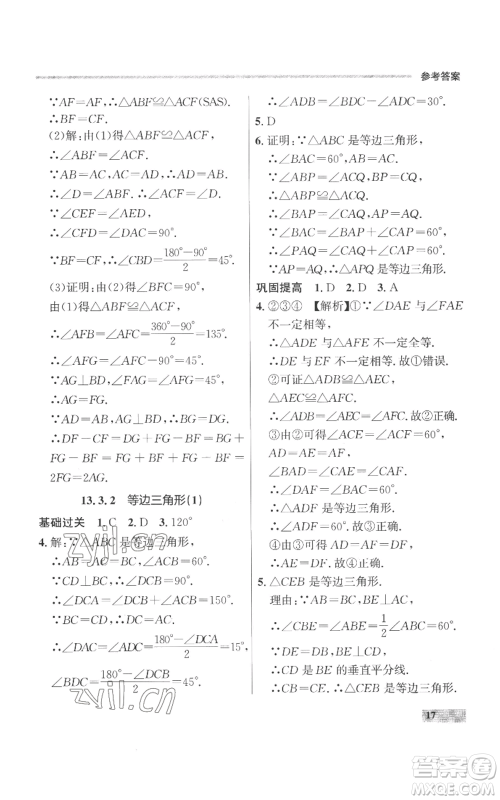 参考答案
∵AF=AF,∴△ABF≌△ACF(SAS).
∴BF=CF.
(2)解:由(1)得△ABF≌△ACF,
∴∠ABF=∠ACF.
∵AB=AC,∴AC=AD.
∴∠D=∠ACF.∴∠D=∠ABF.
∵∠CEF=∠AED,
∴∠CFD=∠CAD=90°.
∵BF=CF,∴∠CBD=180°-90°/2=45°.
(3)证明:由(1)得△ABF≌△ACF,
∴∠AFB=∠AFC=360°-90°/2=135°.
∴∠AFG=45°.
∵AG⊥BD,∴∠AFG=∠GAF=45°.
∴AG=FG.
∵AB=AD,AG⊥BD,∴BG=DG.
∴DF-CF=DG+FG-BF=BG+
FG-BF=FG+BF+FG-BF=
2FG=2AG.
13.3.2 等边三角形(1)
基础过关 1.C 2.D 3.120°
4.解:∵△ABC是等边三角形,
∴AC=BC,∠ACB=60°.
∵∠BCD=90°,∴∠DCA=30°.
∵CD=BC,∴CD=AC.
∴∠DAC=∠ADC=180°-∠DCA/2=75°,
∠BDC=180°-∠DCB/2=45°.
∴∠ADB=∠ADC-∠BDC=30°.
5.D
6.证明:∵△ABC是等边三角形,
∴∠BAC=60°,AB=AC.
∵∠ABP=∠ACQ,BP=CQ,
∴△ABP≌△ACQ.
∴∠BAP=∠CAQ,AP=AQ.
∵∠BAC=∠BAP+∠CAP=60°,
∴∠PAQ=∠CAQ+∠CAP=60°.
∵AP=AQ,∴△APQ是等边三角形.
巩固提高 1.D 2.D 3.A
4.②③④ 【解析】①∵∠DAE与∠FAE
不一定相等,
∴△ADE与△AFE不一定相等.
∴DE与EF不一定相等.故①错误.
②可证△DAB≌△AEC,
∴△ABD≌△EAC.故②正确.
③∵△DAB≌△AEC,
∴AD=AE.
∠BAD=∠CAE=∠CAF.
∵AE=AF,
∴AF=AD.故③正确.
④由③可得AD=AF=DF=AE.
∴∠ADF=60°.故④正确.
5.△CEB是等边三角形.
理由:∵AB=BC,BE⊥AC,
∴∠CBE=∠ABE=1/2∠ABC=60°.
∵DE=DB,BE⊥AC,
∴CD是BE的垂直平分线.
∴CB=CE.∴△CEB是等边三角形.
17
zyjl.cn